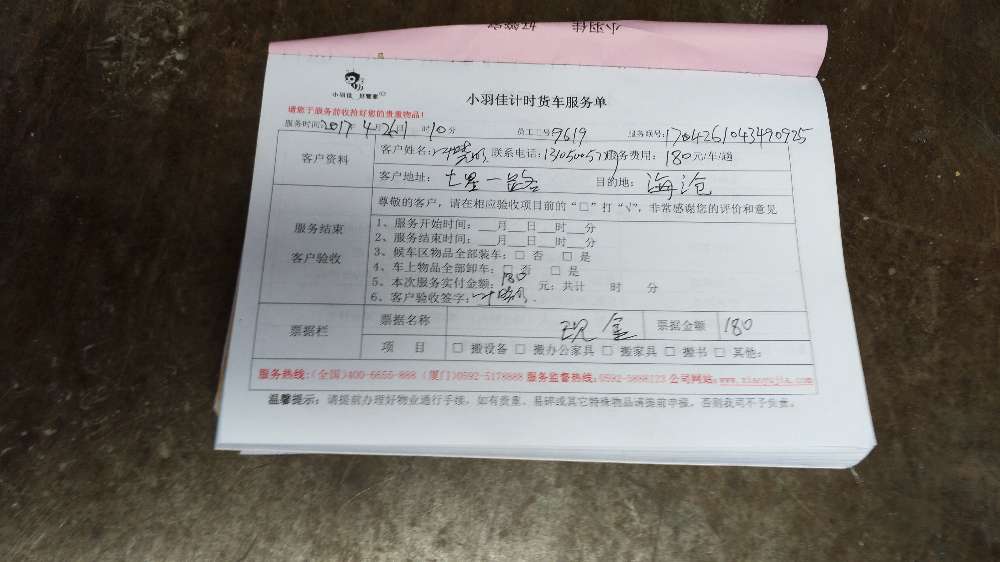 小羽佳 好管家
小羽佳 好管家
小羽佳计时货车服务单
请您于服务前收拾好您的贵重物品！
服务时间:2017年4月26日 时10分 员工工号9619 服务联号:1704261043490925
客户资料
客户姓名: 联系电话: 服务费用: 180元/车/趟
客户地址: 七星一路 目的地: 海沧
服务结束
客户验收
尊敬的客户，请在相应验收项目前的“□”打“√”，非常感谢您的评价和意见
1、服务开始时间：__月__日__时__分
2、服务结束时间：__月__日__时__分
3、候车区物品全部装车：□ 否 □ 是
4、车上物品全部卸车：□ 否 □ 是
5、本次服务实付金额:180 元；共计 时 分
6、客户验收签字:
票据栏
票据名称 现金 票据金额 180
项 目 □ 搬设备 □ 搬办公家具 □ 搬家具 □ 搬书 □ 其他:
服务热线:(全国)400-6655-888 (厦门)0592-5178888 服务监督热线:0592-5888123 公司网站:www.xiaoyujia.com
温馨提示：请提前办理好物业通行手续，如有贵重、易碎或其它特殊物品请提前申报，否则我司不予负责。